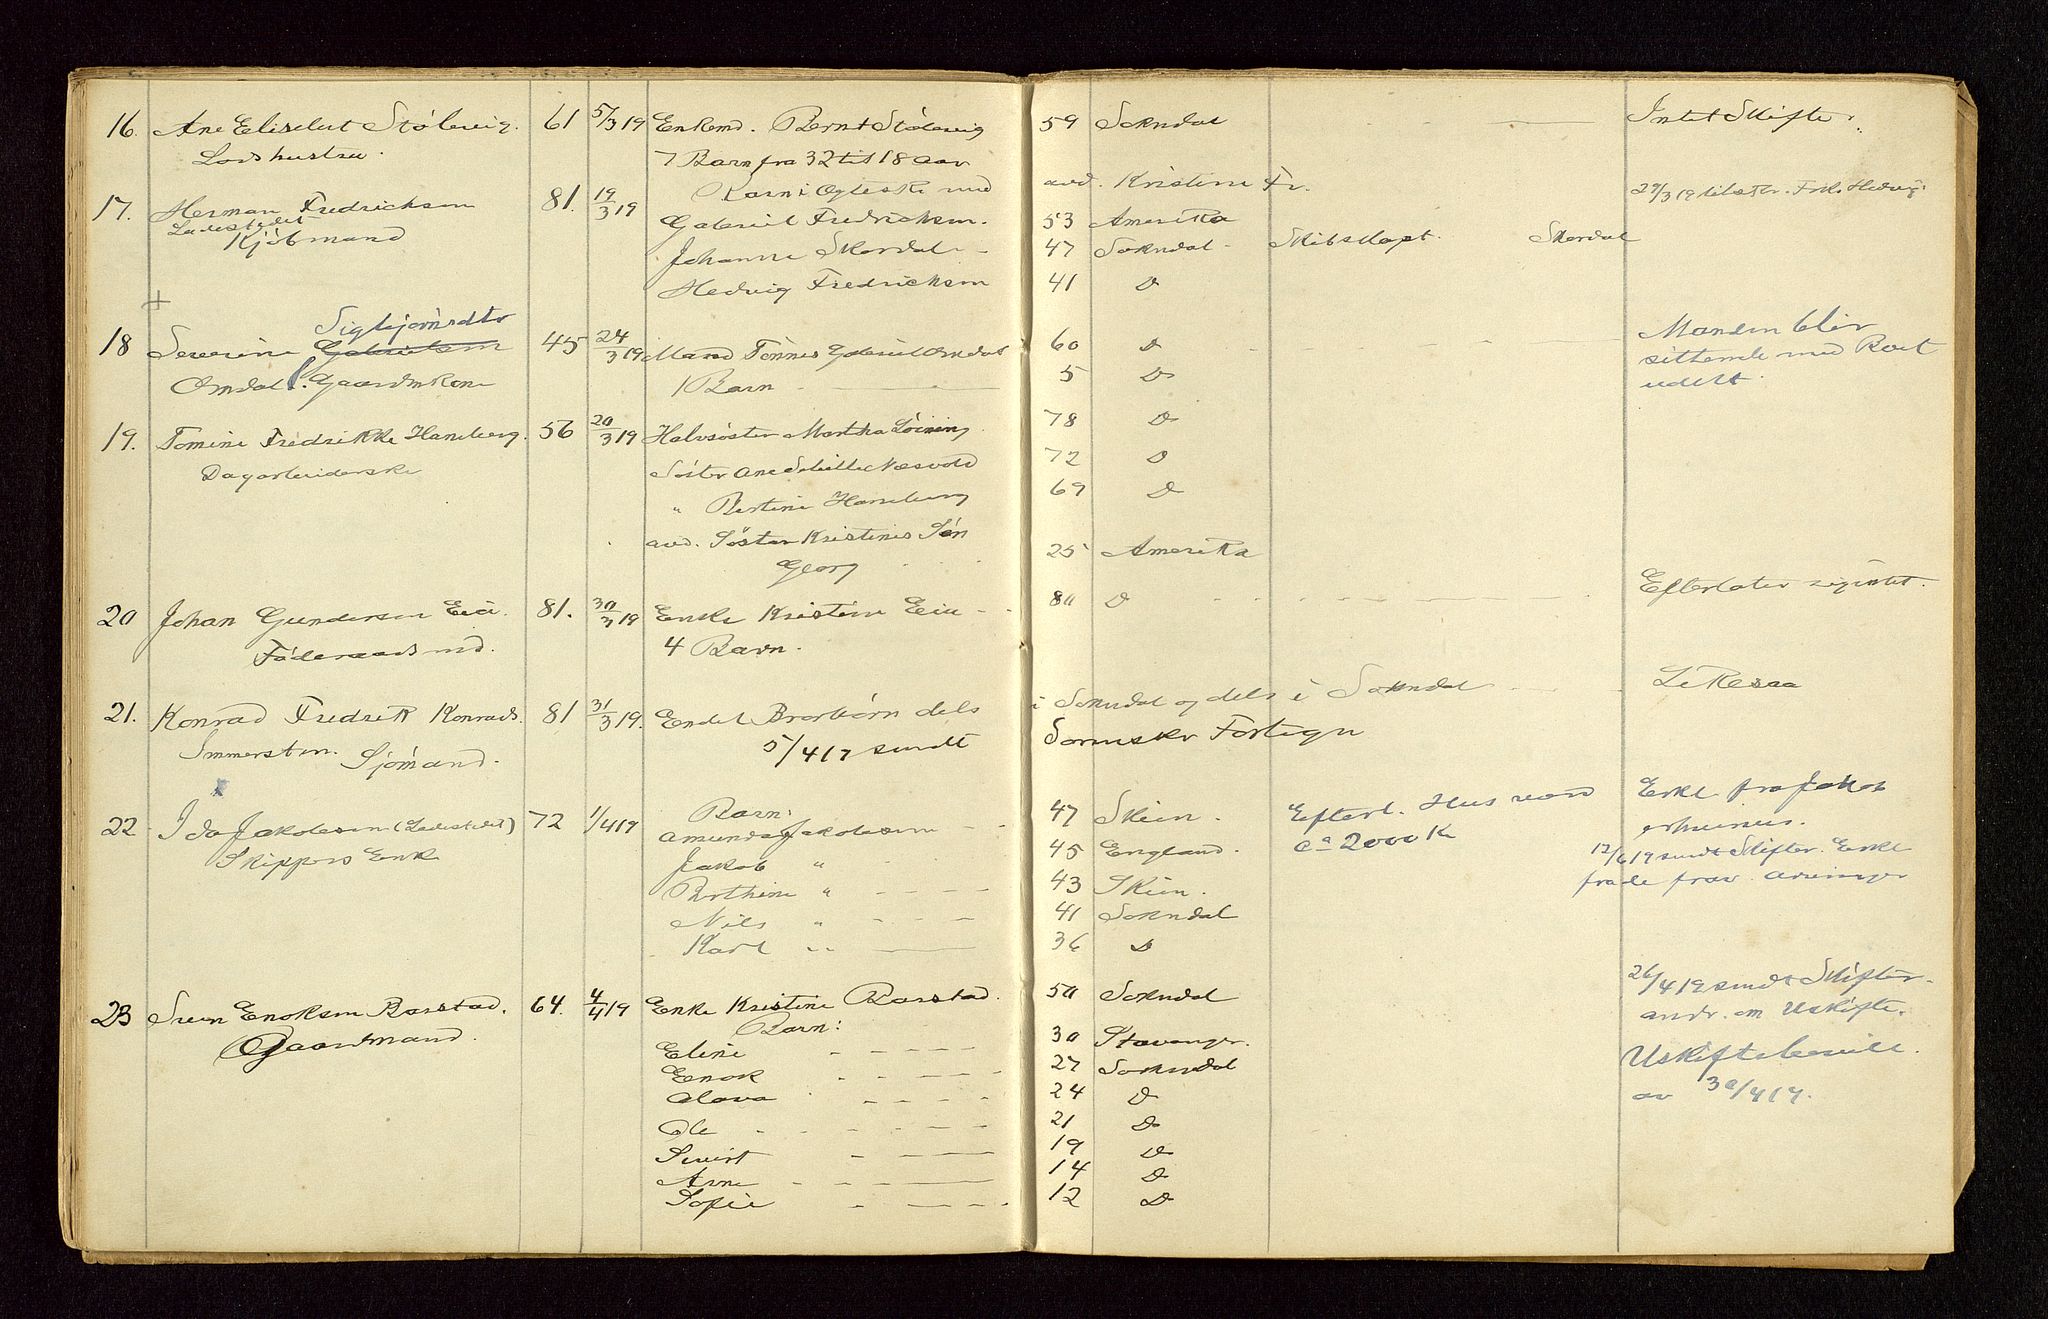 16. Ane Eliselut Stølevig. 61 5/3 19 Enkemd. Bernt Stølevig 59 Sokndal Intet Skifte.
Lodshustru. 7 Barn fra 32 til 18 aar
17. Herman Fredricksen 81. 19/3 19 Barn: Ogteske med avd. Kristine Fr. 29/3 19 Frk. Hedvig
Ladestedet Gabriel Fredricksen. 53 Amerika
Kjøbmand Johanne Skordal 47 Sokndal Skibskapt. Skordal
Hedvig Fredricksen 41 D
+
Sigbjørnsdtr
18 Severine Gabrielsen 45 24/3 19 Mand Tønnes Gabriel Omdal 60 D Manden blir
Omdal. Gaardmkone 1 Barn 5 D sittende med Boet
udelt.
19. Tomine Fredrikke Haneberg. 56 20/3 19 Halvsøster Martha Löining 78 D
Dagarbeiderske Søster Ane Næsvold 72 D
" Bertine Haneberg 69 D
avd. Søster Kristines Søn
Georg 25 Amerika
20 Johan Gundersen Eie. 81. 30/3 19 Enke Kristine Eie 80 D Efterlater sig intet.
Føderaadsmd. 4 Barn.
21. Konrad Fredrik Konrads. 81 31/3 19. Endel Brorbørn dels i Sokndal og dels i Sokndal
Immersten. Sjømand. 5/4 17 sendt Fortegn
x
22 Ida Jakobsen (Ladestedet) 72 1/4 19 Barn: 47 Skien. Efterl. Hus værd Erkl. fra Jakob
Skippers Enke Amunda Jakobsen ca 2000 K
Jakob " 45 England. 12/6 19 sendt Skifter. Erkl
Berthine " 43 Skien. fra de
Nils " 41 Sokndal
Karl " 36 D
23 Sven Enoksen Barstad. 64. 4/4 19 Enke Kristine Barstad. 50 Sokndal 26/4 19 sendt Skifter.
Gaardmand. Barn: andr. om Uskifte.
Eline 30 Stavanger. Uskiftebevill.
Enok 27 Sokndal av 30/4 19.
Olava 24 D
Ole 21 D
Sivert 19 D
Arne 14 D
Sofie 12 D